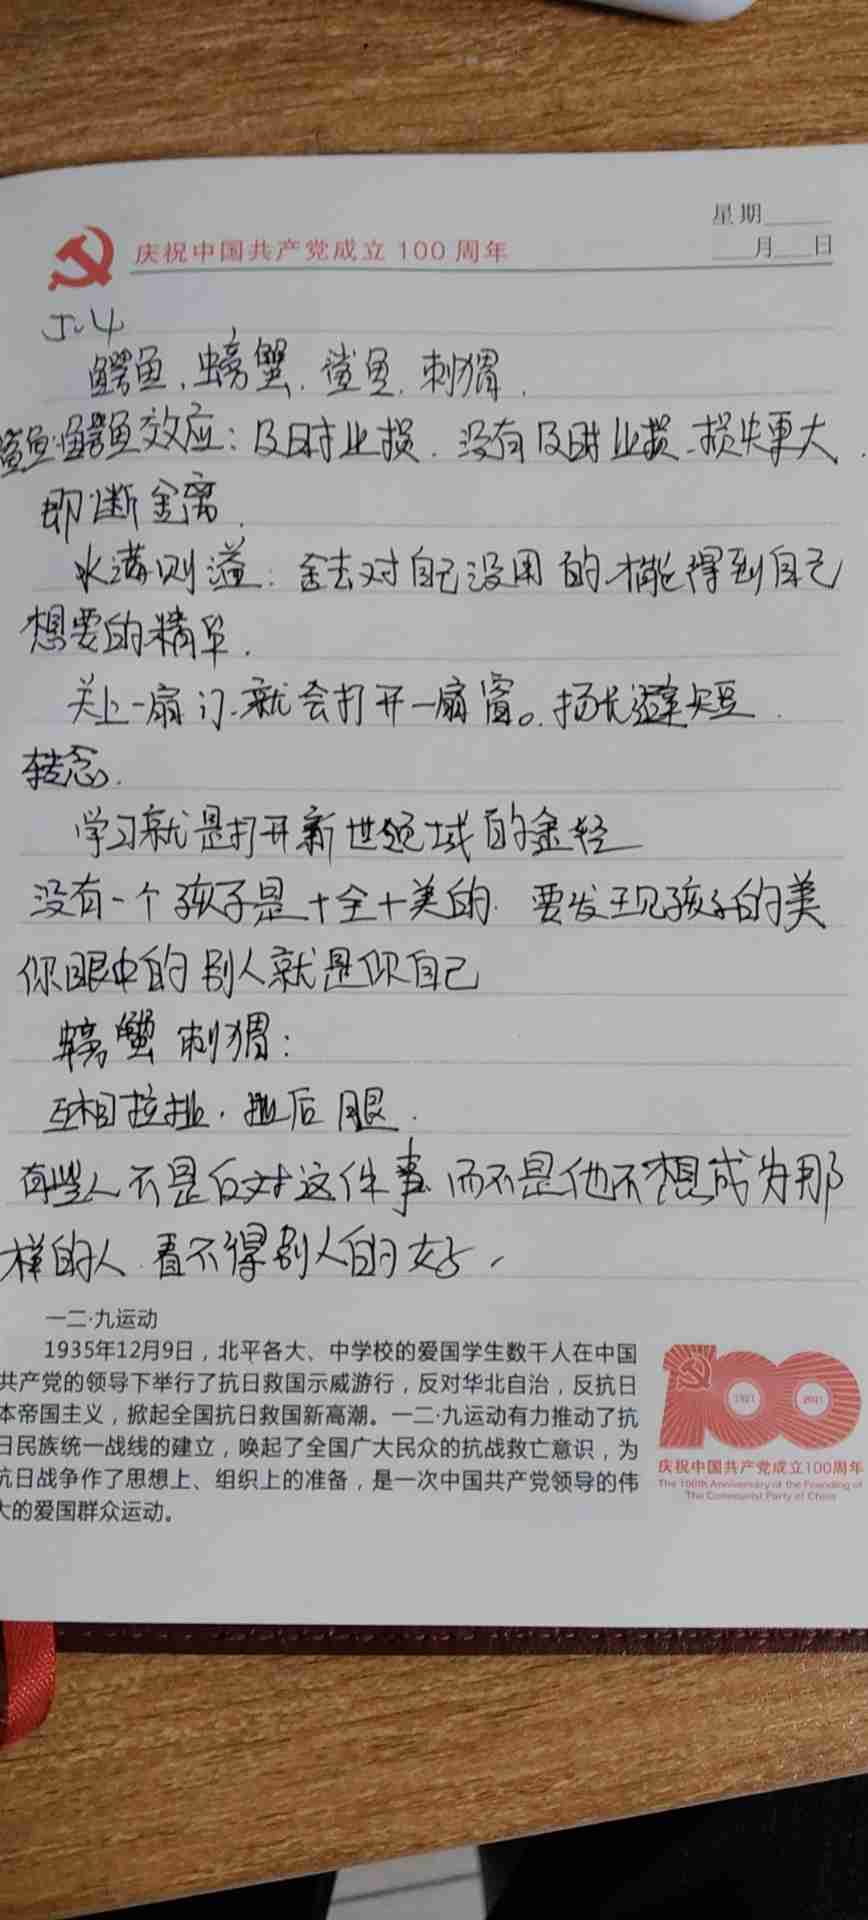 星期
月 日
庆祝中国共产党成立 100 周年
5.4
鳄鱼、螃蟹、鲨鱼、刺猬.
鲨鱼.鳄鱼效应：及时止损.没有及时止损、损失更大.
即断舍离.
水满则溢：舍去对自己没用的.才能得到自己
想要的精华.
关上一扇门.就会打开一扇窗。扬长避短.
转念.
学习就是打开新世领域的金
没有一个孩子是十全十美的.要发现孩子的美
你眼中的别人就是你自己
螃蟹 刺猬：
互相拉扯.拖后腿.
有些人不是反对这件事 而不是他不想成为那
样的人.看不得别人的好、
一二·九运动
1935年12月9日，北平各大、中学校的爱国学生数千人在中国
共产党的领导下举行了抗日救国示威游行，反对华北自治，反抗日
本帝国主义，掀起全国抗日救国新高潮。一二·九运动有力推动了抗
日民族统一战线的建立，唤起了全国广大民众的抗战救亡意识，为
抗日战争作了思想上、组织上的准备，是一次中国共产党领导的伟
大的爱国群众运动。
100
1921
2021
庆祝中国共产党成立100周年
The 100th Anniversary of the Founding of
The Communist Party of China